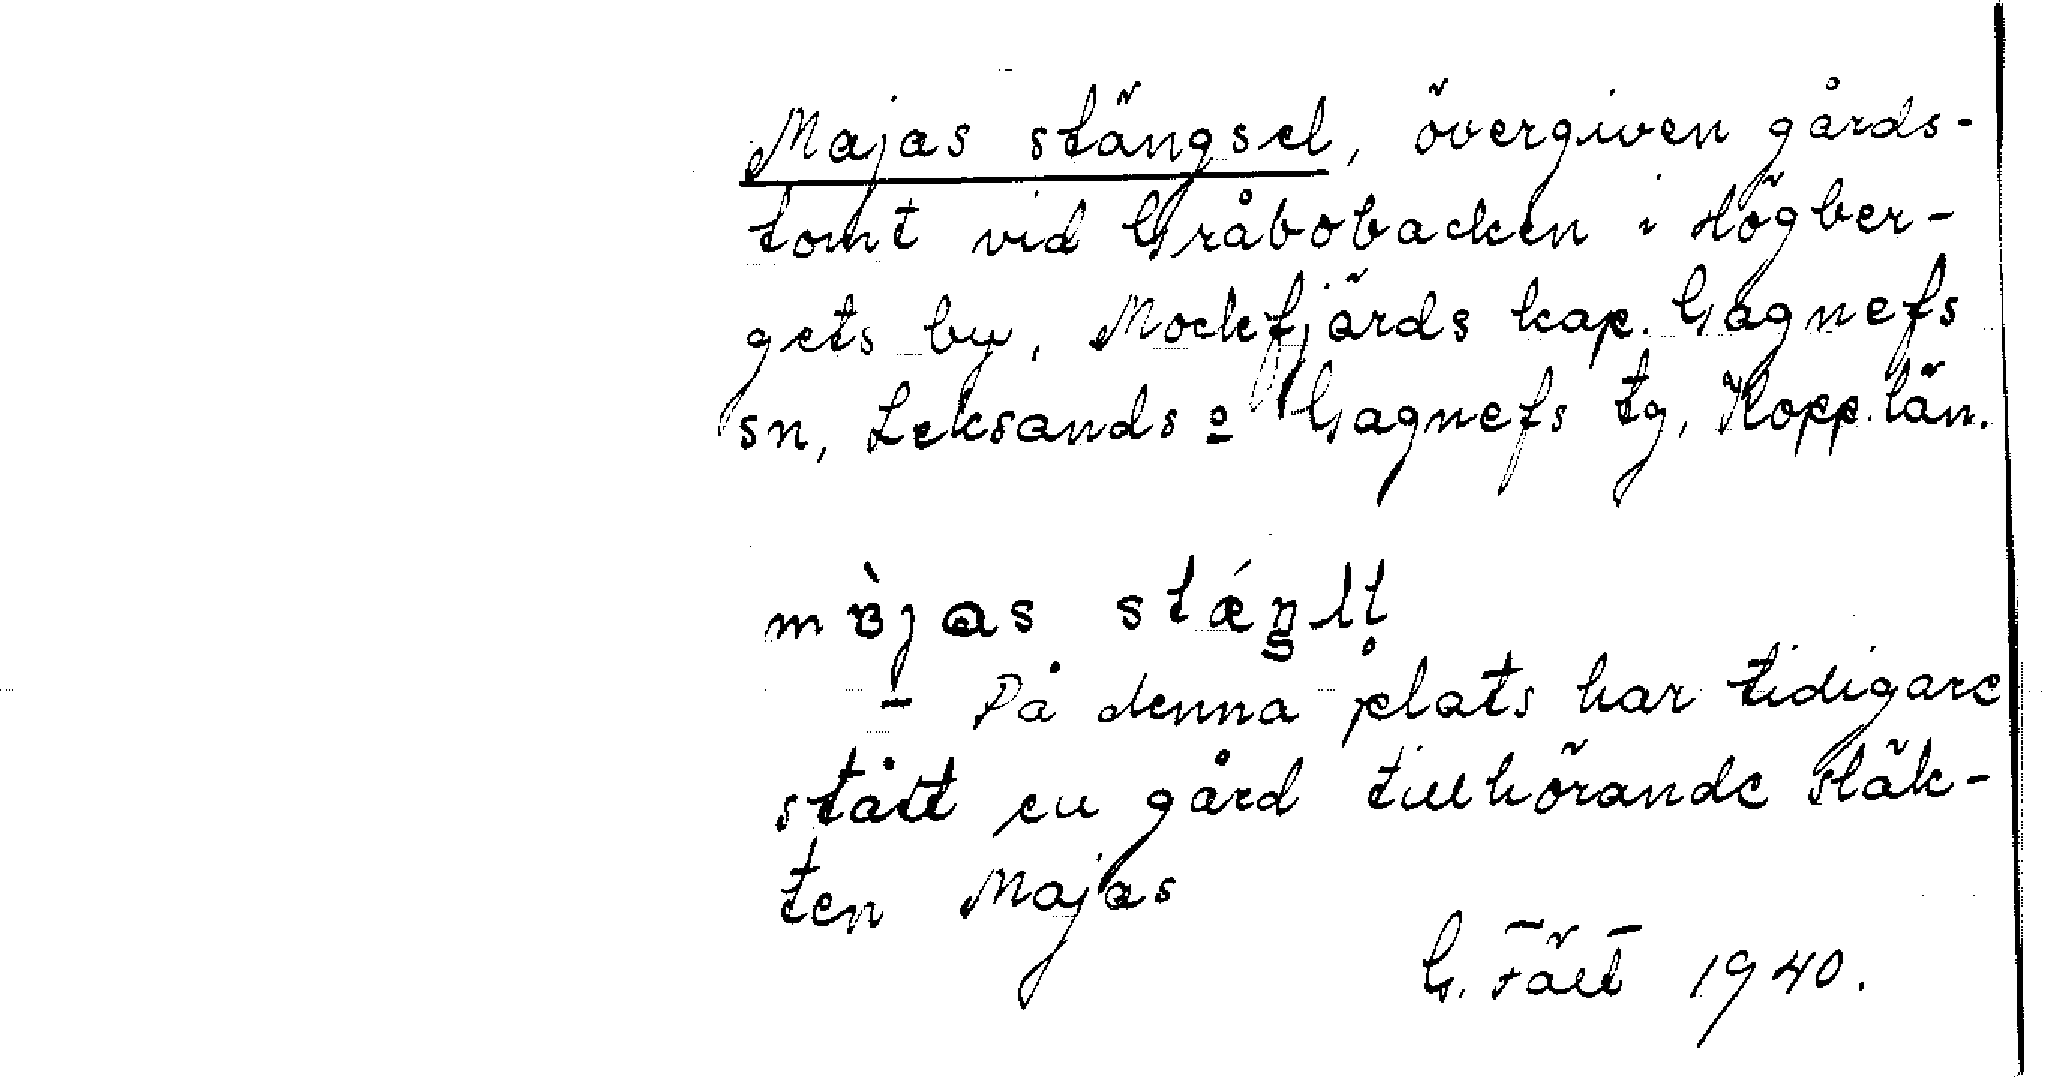 Majas stängsel, övergiven gårds-
tomt vid Gråbobacken i Högber-
gets by, Mockfjärds kap. Gagnefs
sn, Leksands o Gagnefs tg, Kopp. län.
stǽŋlt̥
- På denna plats har tidigare
stått en gård tillhörande släk-
ten Majas
G. Fält 1940.